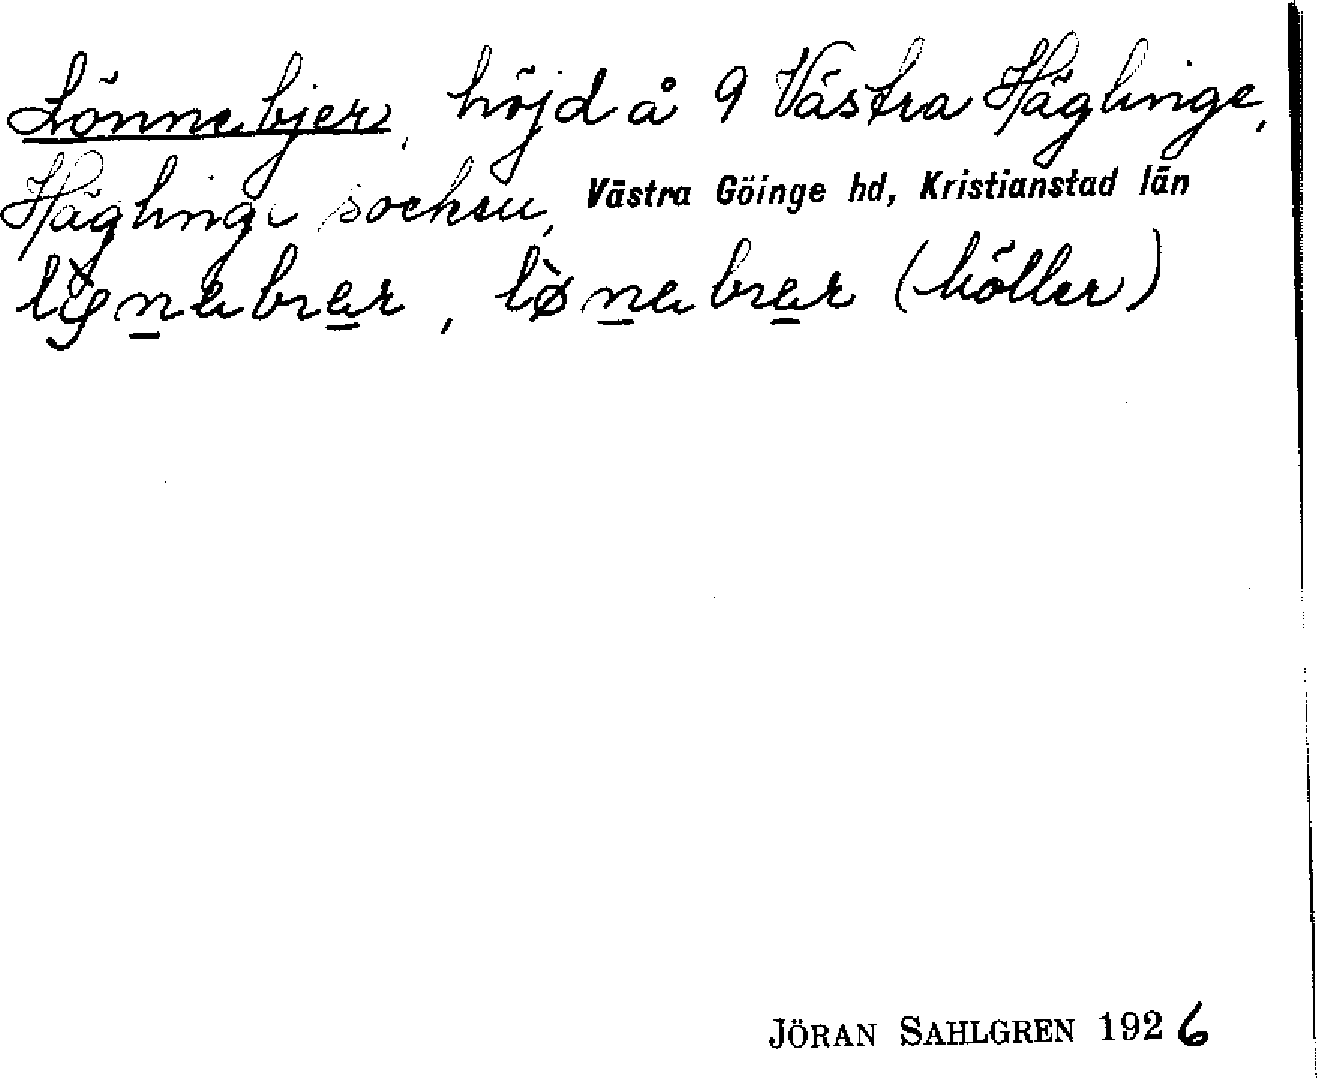 Lönnebjer, höjd å 9 Västra Häglinge,
Häglinge socken, Västra Göinge hd, Kristianstad län
(höller)
JÖRAN SAHLGREN 1926